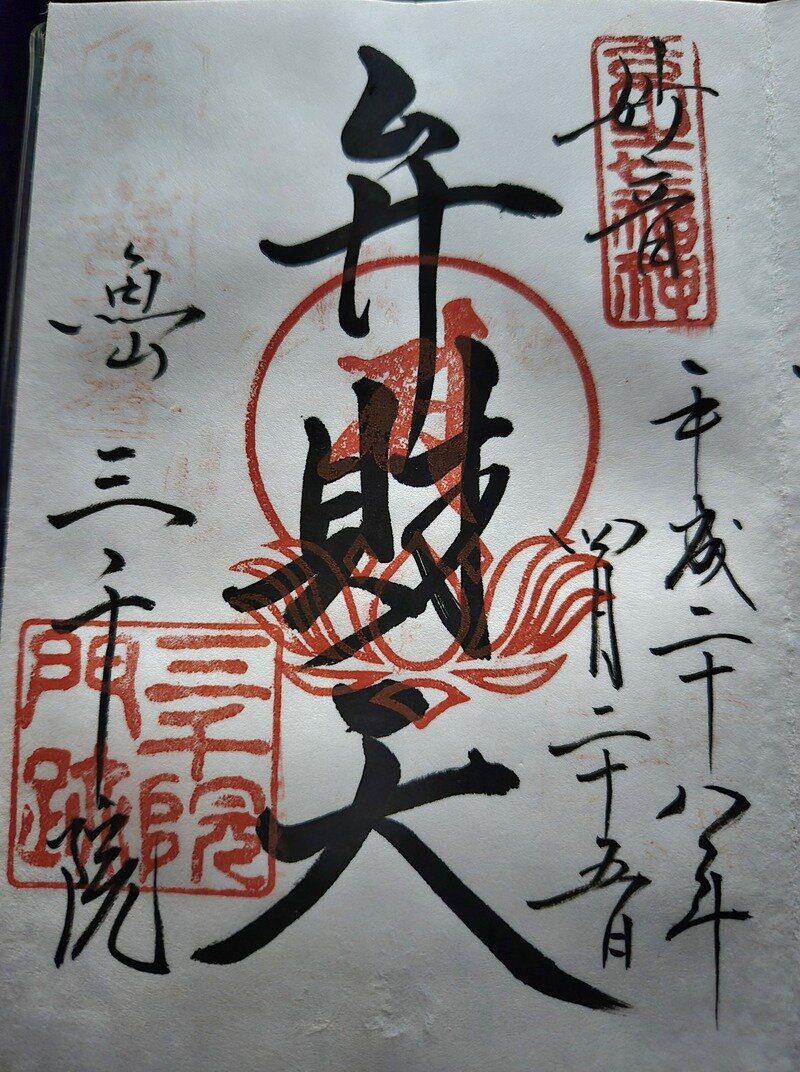 妙音
七福神
平成二十八年
四月二十五日
弁財天
魚山 三千院
三千院
門跡